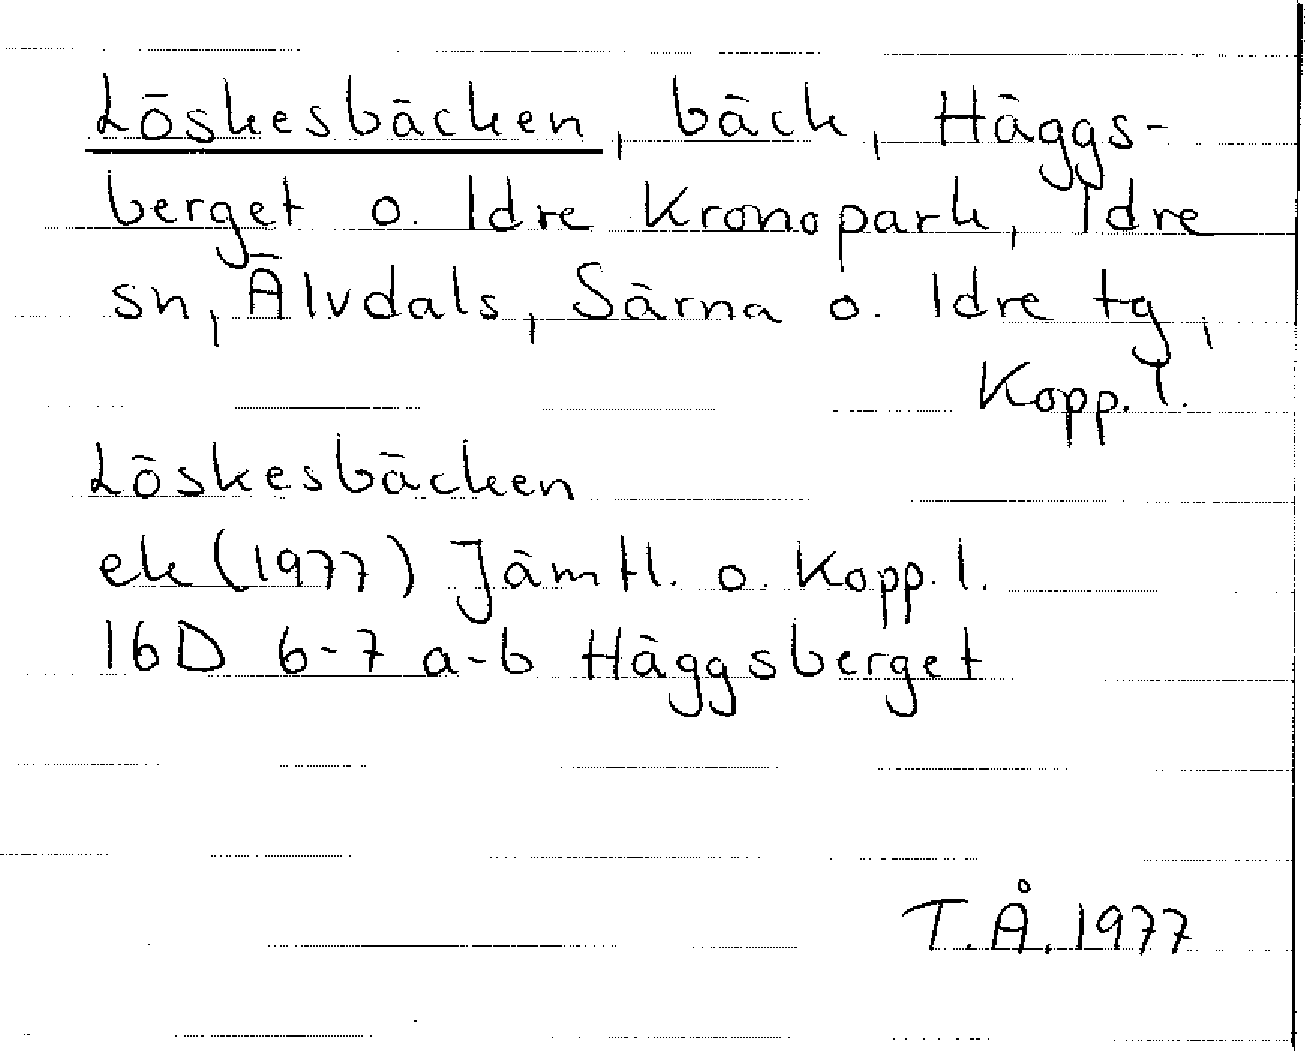 Löskesbäcken, bäck, Häggs-
berget o. Idre Kronopark, Idre
sn, Älvdals, Särna o. Idre tg,
Kopp. l.
Löskesbäcken
ek (1977) Jämtl. o. Kopp. l.
16D 6-7 a-b Häggsberget
T.Å. 1977